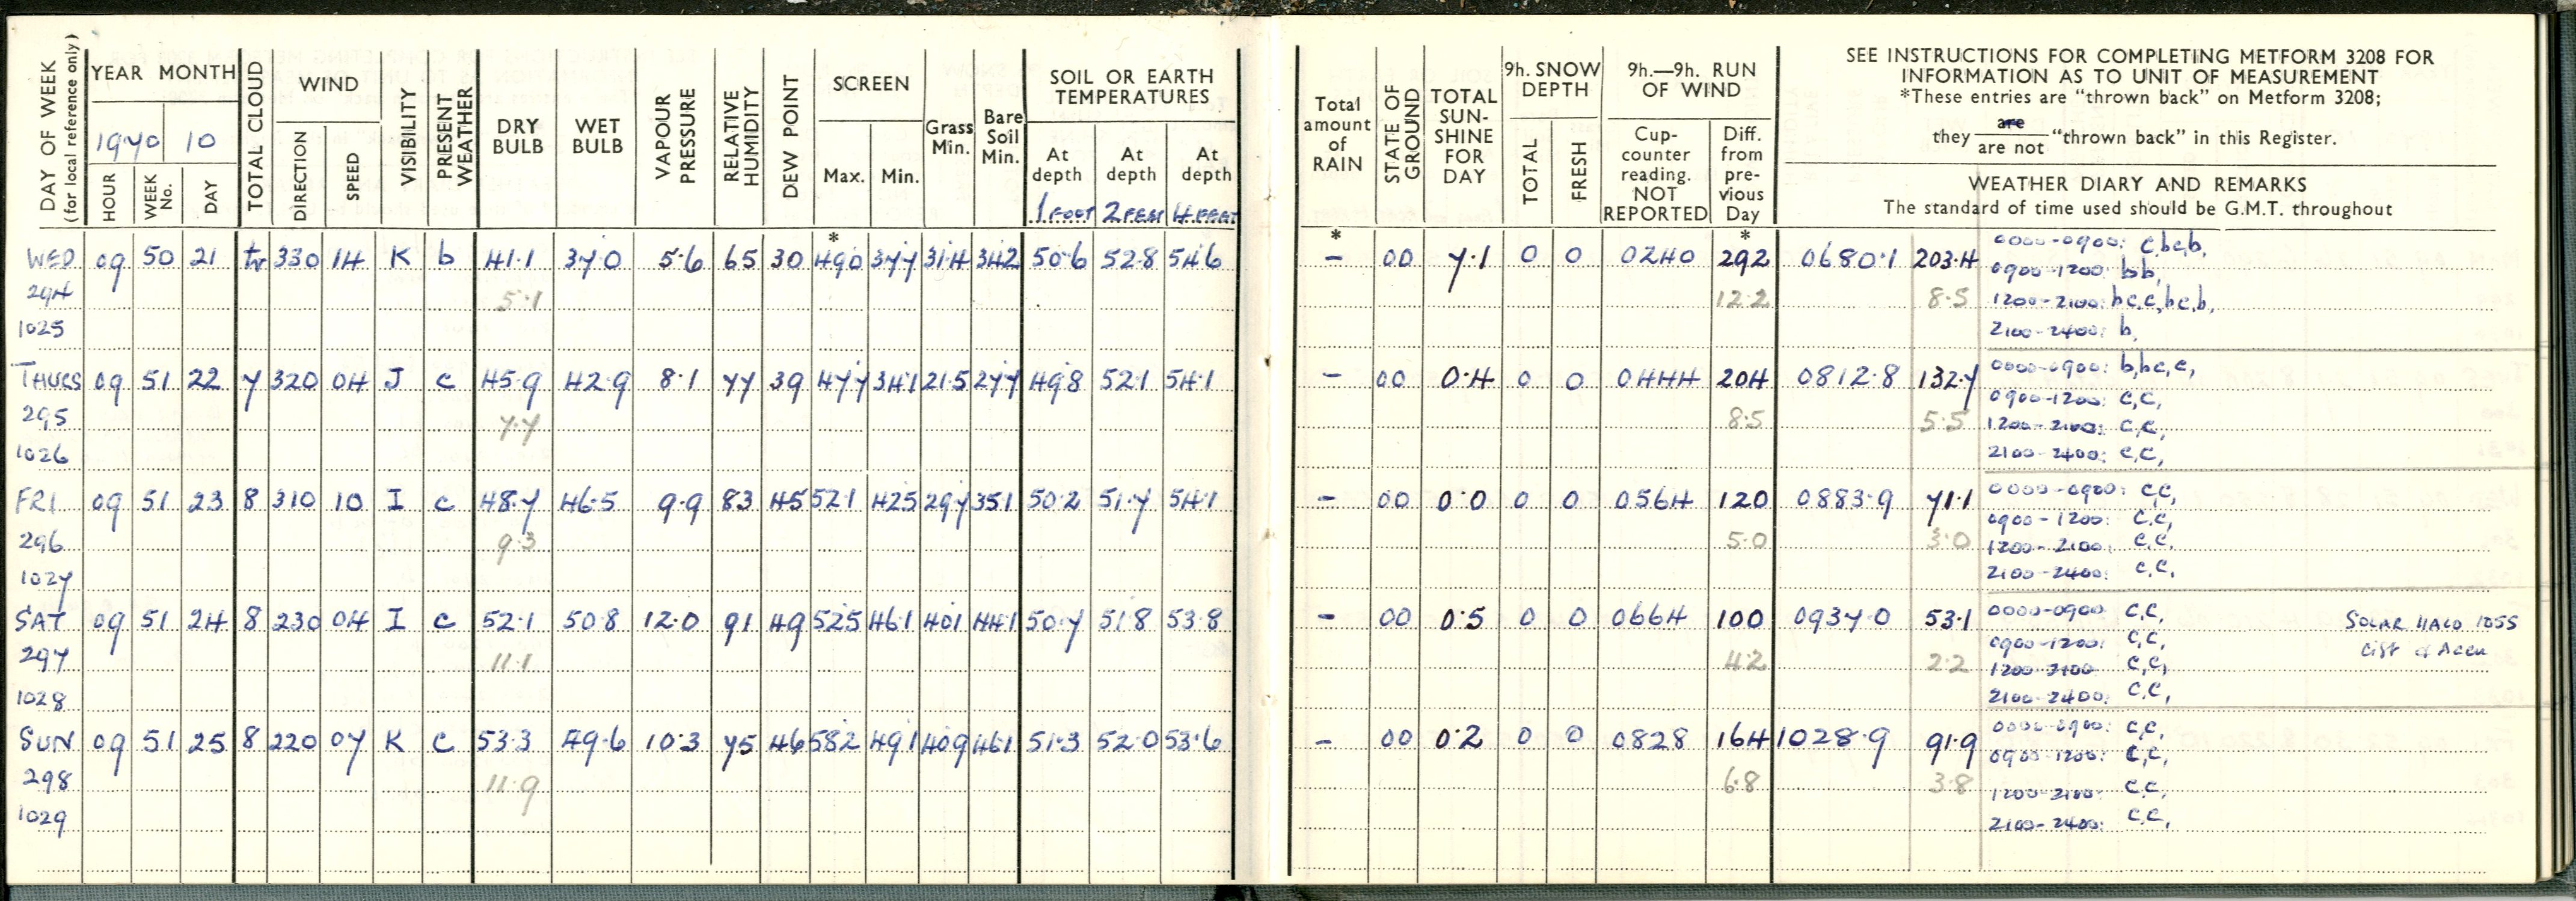 DAY OF WEEK (for local reference only)
YEAR MONTH
1970 10
HOUR WEEK No. DAY
TOTAL CLOUD
WIND
DIRECTION SPEED
VISIBILITY
PRESENT WEATHER
DRY BULB
WET BULB
VAPOUR PRESSURE
RELATIVE HUMIDITY
DEW POINT
SCREEN
Max. Min.
Grass Min.
Bare Soil Min.
SOIL OR EARTH TEMPERATURES
At depth 1 FOOT
At depth 2 FEET
At depth 4 FEET
Total amount of RAIN
STATE OF GROUND
TOTAL SUN-SHINE FOR DAY
9h. SNOW DEPTH
TOTAL FRESH
9h.—9h. RUN OF WIND
Cup-counter reading. NOT REPORTED
Diff. from pre-vious Day
SEE INSTRUCTIONS FOR COMPLETING METFORM 3208 FOR
INFORMATION AS TO UNIT OF MEASUREMENT
*These entries are "thrown back" on Metform 3208;
they are / are not "thrown back" in this Register.
WEATHER DIARY AND REMARKS
The standard of time used should be G.M.T. throughout
* * *
WED 09 50 21 tr 330 14 K b 41.1 37.0 5.6 65 30 49.0 37.7 31.4 34.2 50.6 52.8 54.6 - 00 7.1 0 0 0240 292 0680.1 203.4 0000-0900: c,bc,b,
0900-1200: b,b,
294 5.1 12.2 8.5 1200-2100: bc,c,bc,b,
1025 2100-2400: b,
THURS 09 51 22 7 320 04 J c 45.9 42.9 8.1 77 39 47.7 34.1 21.5 27.7 49.8 52.1 54.1 - 00 0.4 0 0 0444 204 0812.8 132.7 0000-0900: b,bc,c,
0900-1200: c,c,
295 7.7 8.5 5.5 1200-2100: c,c,
1026 2100-2400: c,c,
FRI 09 51 23 8 310 10 I c 48.7 46.5 9.9 83 45 52.1 42.5 29.7 35.1 50.2 51.7 54.1 - 00 0.0 0 0 0564 120 0883.9 71.1 0000-0900: c,c,
0900-1200: c,c,
296 9.3 5.0 3.0 1200-2100: c,c,
1027 2100-2400: c,c,
SAT 09 51 24 8 230 04 I c 52.1 50.8 12.0 91 49 52.5 46.1 40.1 44.1 50.7 51.8 53.8 - 00 0.5 0 0 0664 100 0937.0 53.1 0000-0900 c,c, SOLAR HALO 1055
0900-1200: c,c,
297 11.1 4.2 2.2 1200-2100 c,c,
1028 2100-2400: c,c,
SUN 09 51 25 8 220 07 K c 53.3 49.6 10.3 75 46 58.2 49.1 40.9 46.1 51.3 52.0 53.6 - 00 0.2 0 0 0828 164 1028.9 91.9 0000-0900: c,c,
0900-1200: c,c,
298 11.9 6.8 3.8 1200-2100: c,c,
1029 2100-2400: c,c,